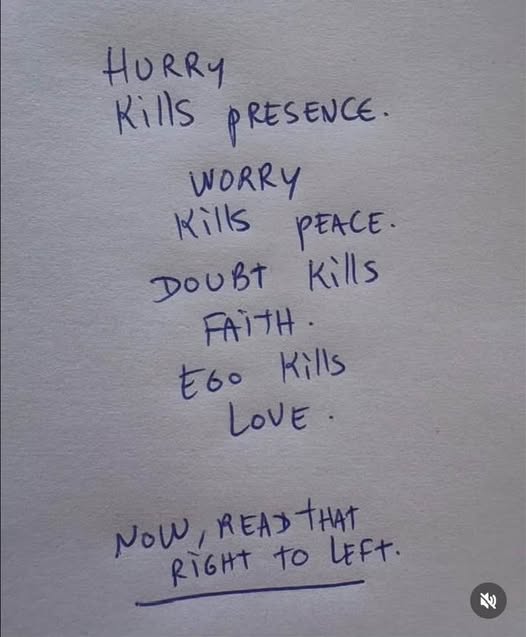 HURRY
Kills PRESENCE.
WORRY
Kills PEACE.
DOUBt Kills
FAiTH.
EGO Kills
LOVE.
NOW, READ tHAT
RiGHT TO LEFT.